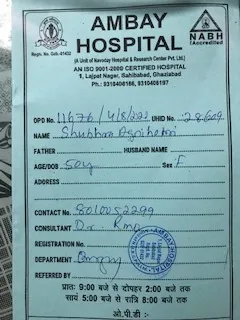 AMBAY
HOSPITAL
NABH
Accredited
Regn. No. Gzb.-01452
(A Unit of Navoday Hospital & Research Center Pvt. Ltd.)
AN ISO 9001-2008 CERTIFIED HOSPITAL
1, Lajpat Nagar, Sahibabad, Ghaziabad
Ph.: 9310408186, 9310408187
OPD NO. 11676 / 4/8/ UHID NO.
NAME Shubhra Agnihotri
FATHER HUSBAND NAME
AGE/DOB 50y Sex F
ADDRESS
CONTACT NO. 8010052299
CONSULTANT Dr. Rmo
REGISTRATION No.
DEPARTMENT
REFERRED BY
AMBAY HOSPITAL
प्रातः 9:00 बजे से दोपहर 2:00 बजे तक
सायं 5:00 बजे से रात्रि 8:00 बजे तक
ओ.पी.डी. :